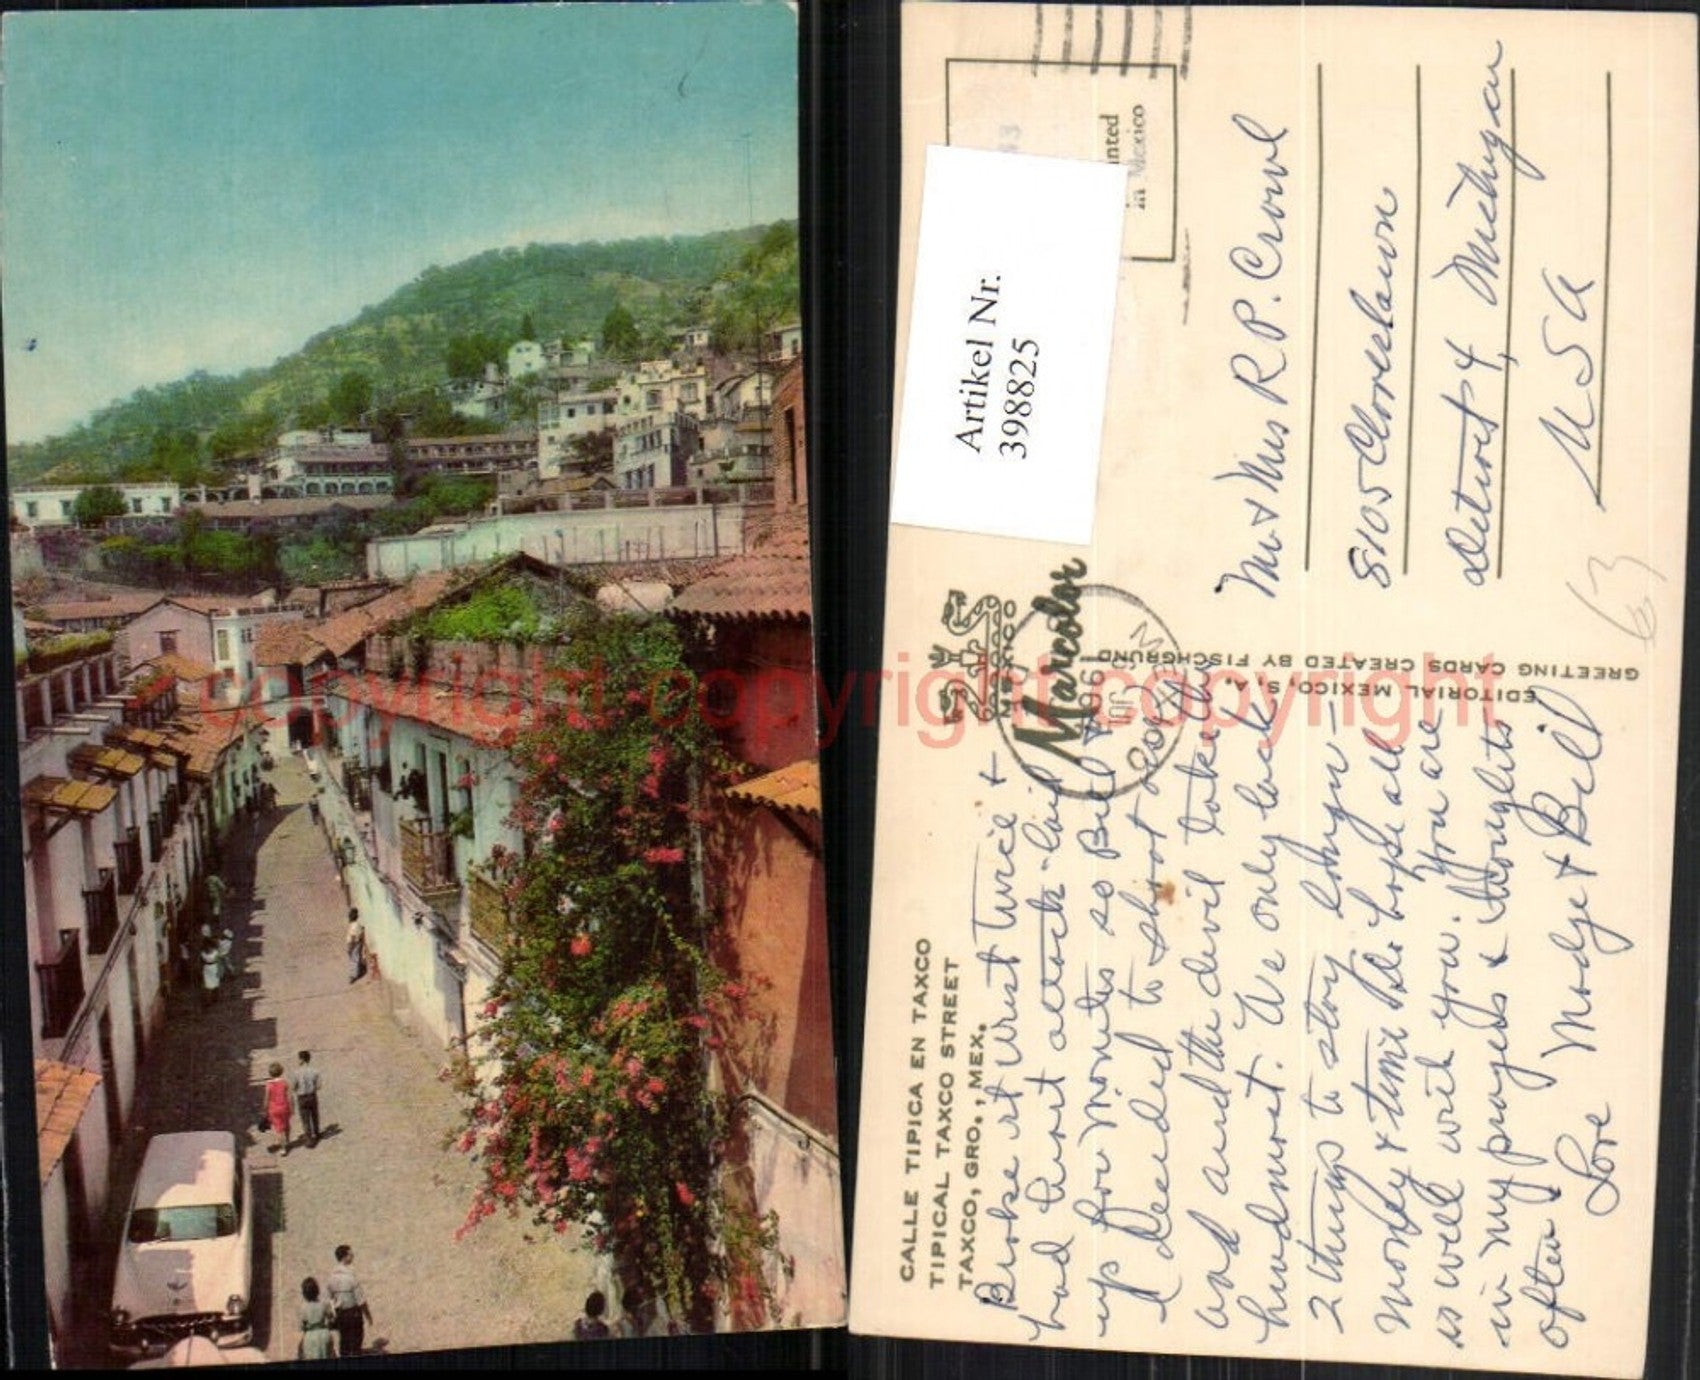 CALLE TIPICA EN TAXCO
TIPICAL TAXCO STREET
TAXCO, GRO., MEX.
Broke rt wrist twice +
had heart attack - laid
up for months so Bill &
I decided to shoot
and and the devil take the
hindmost. We only lack
2 things to stay longer -
money & time. Hope all
is well with you. You are
in my prayers & thoughts
often.
Love Madge & Bill
MEXICO
Marcolor
EDITORIAL MEXICO, S. A.
GREETING CARDS CREATED BY FISCHGRUND
Artikel Nr.
398825
in Mexico
Mr & Mrs R. P. Crowl
8105 Cloverlawn
Detroit 4, Michigan
USA
63
copyright copyright copyright